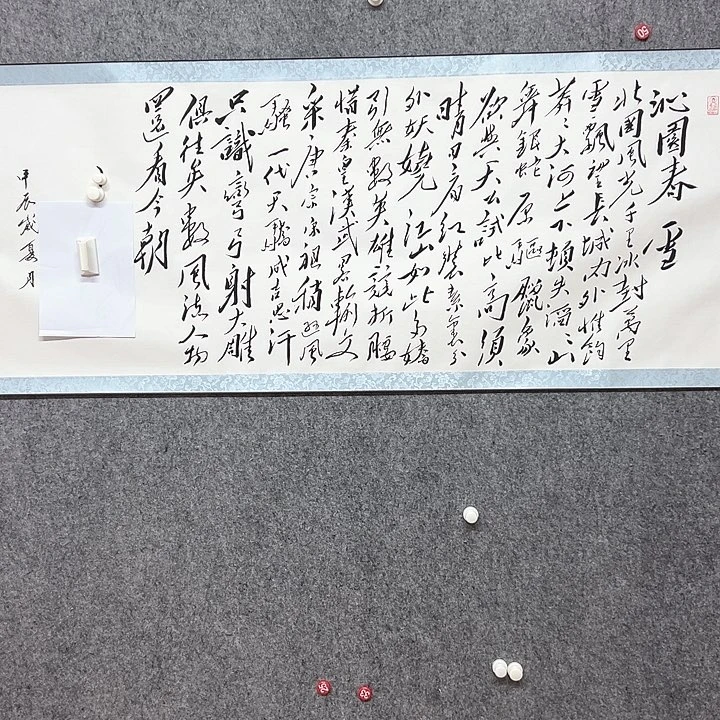 沁園春 雪
北國風光千里冰封萬里
雪飄望長城內外惟餘
莽〻大河上下頓失滔〻山
舞銀蛇原驅臘象
欲與天公試比高須
晴日看紅裝素裹分
外妖嬈江山如此多嬌
引無數英雄競折腰
惜秦皇漢武畧輸文
采唐宗宋祖稍遜風
騷一代天驕成吉思汗
只識彎弓射大雕
俱往矣數風流人物
還看今朝
甲辰歲夏月